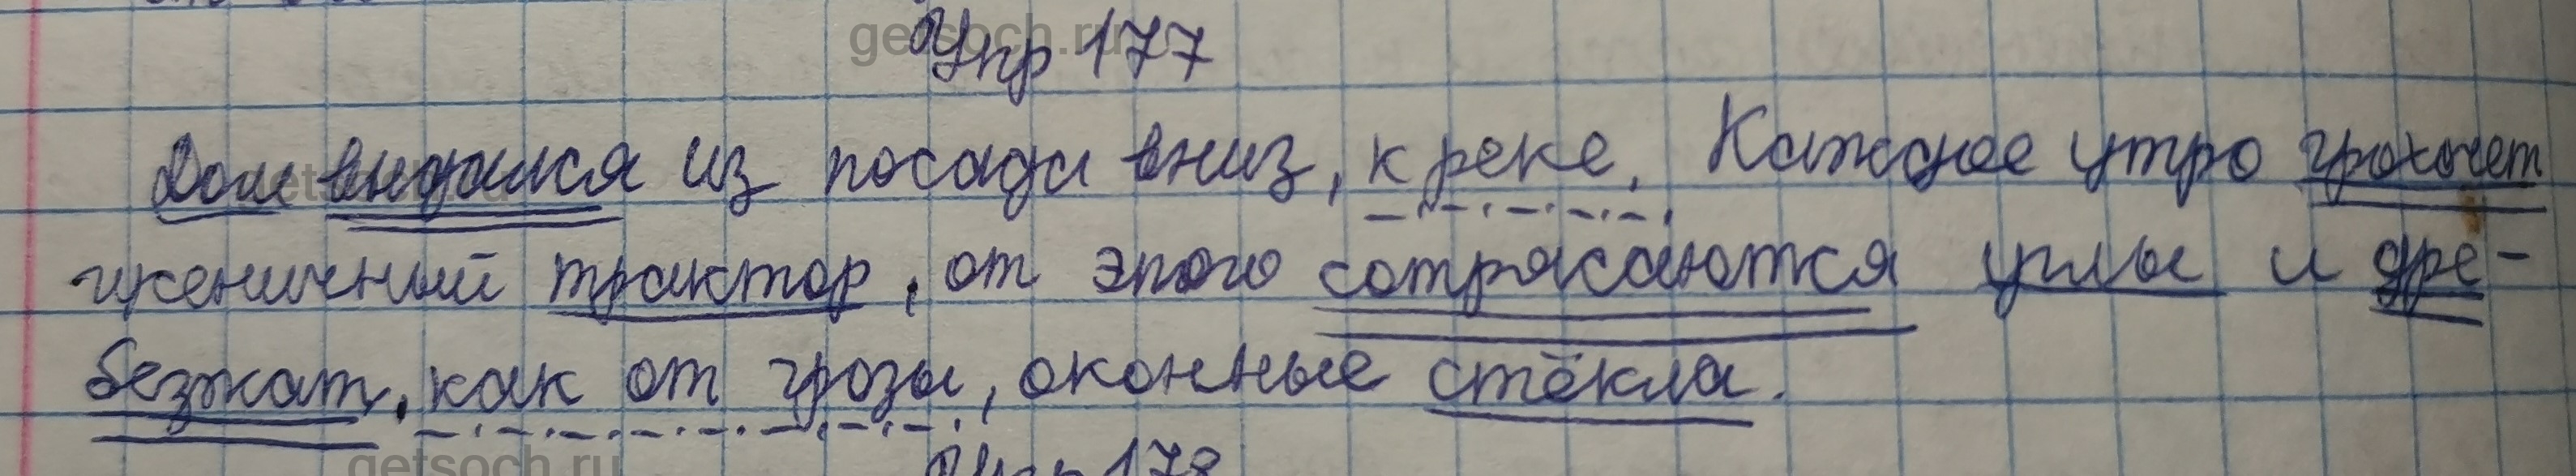 Упр 177
Дом выдался из посада вниз, к реке. Каждое утро грохочет
гусеничный трактор, от этого сотрясаются углы и дре-
безжат, как от грозы, оконные стёкла.
Упр 178
getsoch.ru